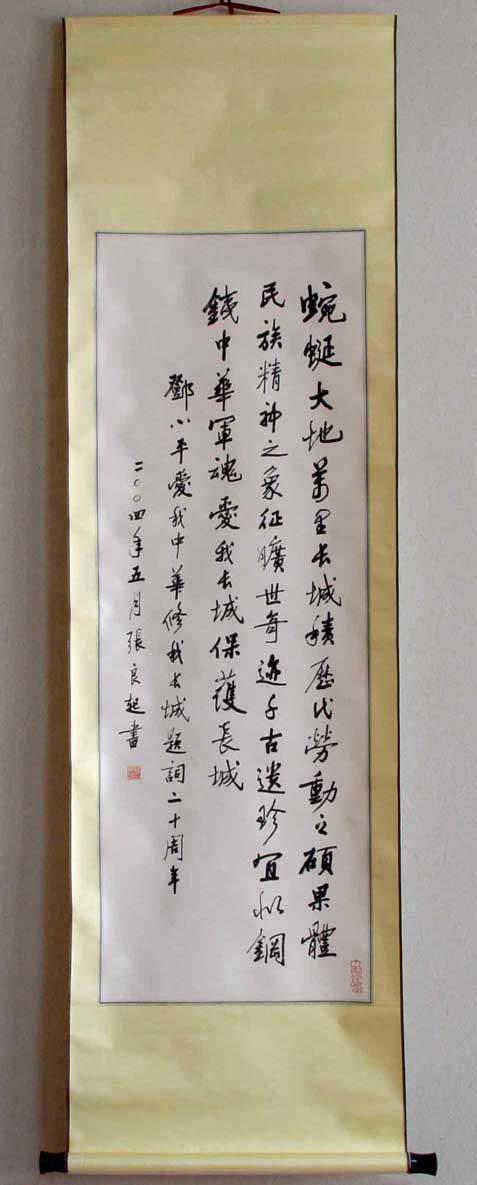 蜿蜒大地萬里长城積歷代勞動之碩果體
民族精神之象征曠世奇迹千古遺珍宜鋼
鐵中華軍魂愛我长城保護長城
鄧小平愛我中華修我长城題詞二十周年
二〇〇四年五月張良起書